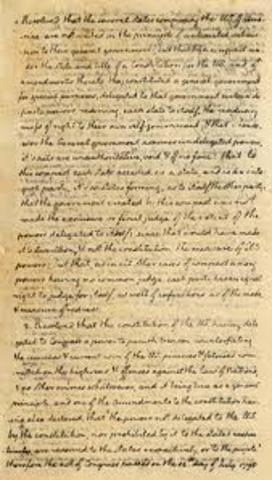 1. Resolved that the several states composing the US. of Ame-
-rica are not united on the principle of unlimited submis-
sion to their general government; but that by a compact un-
der the style and title of a Constitution for the US. and of
amendments thereto, they constituted a general government
for special purposes, delegated to that government certain de-
finite powers, reserving each state to itself, the residuary
mass of right to their own self-government; & that whenso-
ever the General government assumes undelegated powers,
it's acts are unauthoritative, void, & of no force: that to
this compact each state acceded as a state, and is an inte-
gral party, it's co-states forming, as to itself, the other party:
that the government created by this compact was not
made the exclusive or final judge of the extent of the
powers delegated to itself; since that would have made
it's discretion, & not the constitution, the measure of it's
powers; but that, as in all other cases of compact among
powers having no common judge, each party has an equal
right to judge for itself, as well of infractions as of the mode
& measure of redress.
2. Resolved that the constitution of the US. having dele-
gated to Congress a power to punish treason, counterfeiting
the securities & current coin of the US. piracies & felonies com-
mitted on the high seas & offences against the law of nations,
& no other crimes whatsoever, and it being true as a general
principle, and one of the amendments to the constitution hav-
ing also declared, that the powers not delegated to the US.
by the constitution, nor prohibited by it to the states,
are reserved to the states respectively, or to the people
therefore the act of Congress passed on the 14th day of July 1798